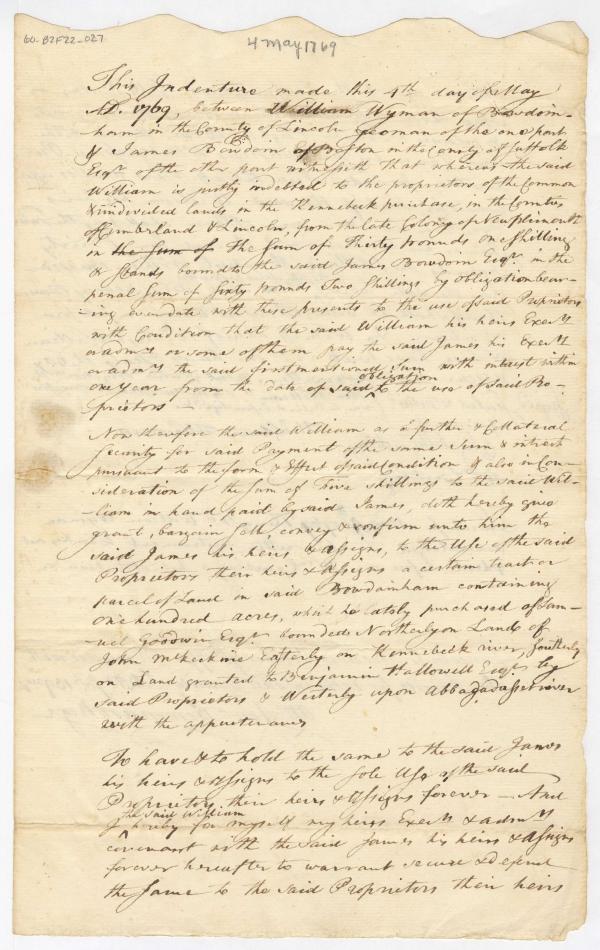 60-B2F22-027
4 May 1769
This Indenture made this 4th day of May
A.D. 1769, between William Wyman of Bowdoin-
ham in the County of Lincoln yeoman of the one part
& James Bowdoin of Boston in the County of Suffolk
Esqr. of the other part witnesseth that whereas the said
William is justly indebted to the proprietors of the Common
& undivided lands in the Kennebeck purchase, in the Counties
of Cumberland & Lincoln, from the late Colony of New plimouth
in the Sum of The Sum of Thirty pounds one Shilling
& Stands bound to the said James Bowdoin Esqr. in the
penal Sum of Sixty pounds Two Shillings by obligation bear-
-ing even date with these presents to the use of said Proprietors
with Condition that the said William his heirs Execrs
or admrs or some of them pay the said James his Execrs
or admrs the said first mentioned Sum with interest within
one year from the date of said obligation to the use of said Pro-
-prietors —
Now therefore the said William as a further & Collateral
security for said Payment of the same Sum & intrest
pursuant to the form & Effect of said Condition & also in Con-
sideration of the Sum of Five shillings to the said Wil-
liam in hand paid by said James, doth hereby give
grant, bargain sell, convey & confirm unto him the
said James his heirs & assigns, to the Use of the said
Proprietors their heirs & assigns a certain tract or
parcel of Land in said Bowdoinham containing
one hundred acres, which he lately purchased of Sam-
-uel Goodwin Esqr. bounded Northerly on Land of
John McKechnie Easterly on Kennebeck river, Southerly
on Land granted to Benjamin Hallowell Esqr. by
said Proprietors & Westerly upon Abbagadasset river
with the appurtenances
To have & to hold the same to the said James
his heirs & assigns to the sole Use of the said
Proprietors their heirs & assigns forever — And
I the said William hereby for myself my heirs Execrs & admrs
covenant with the said James his heirs & assigns
forever hereafter to warrant secure & defend
the same to the said Proprietors their heirs